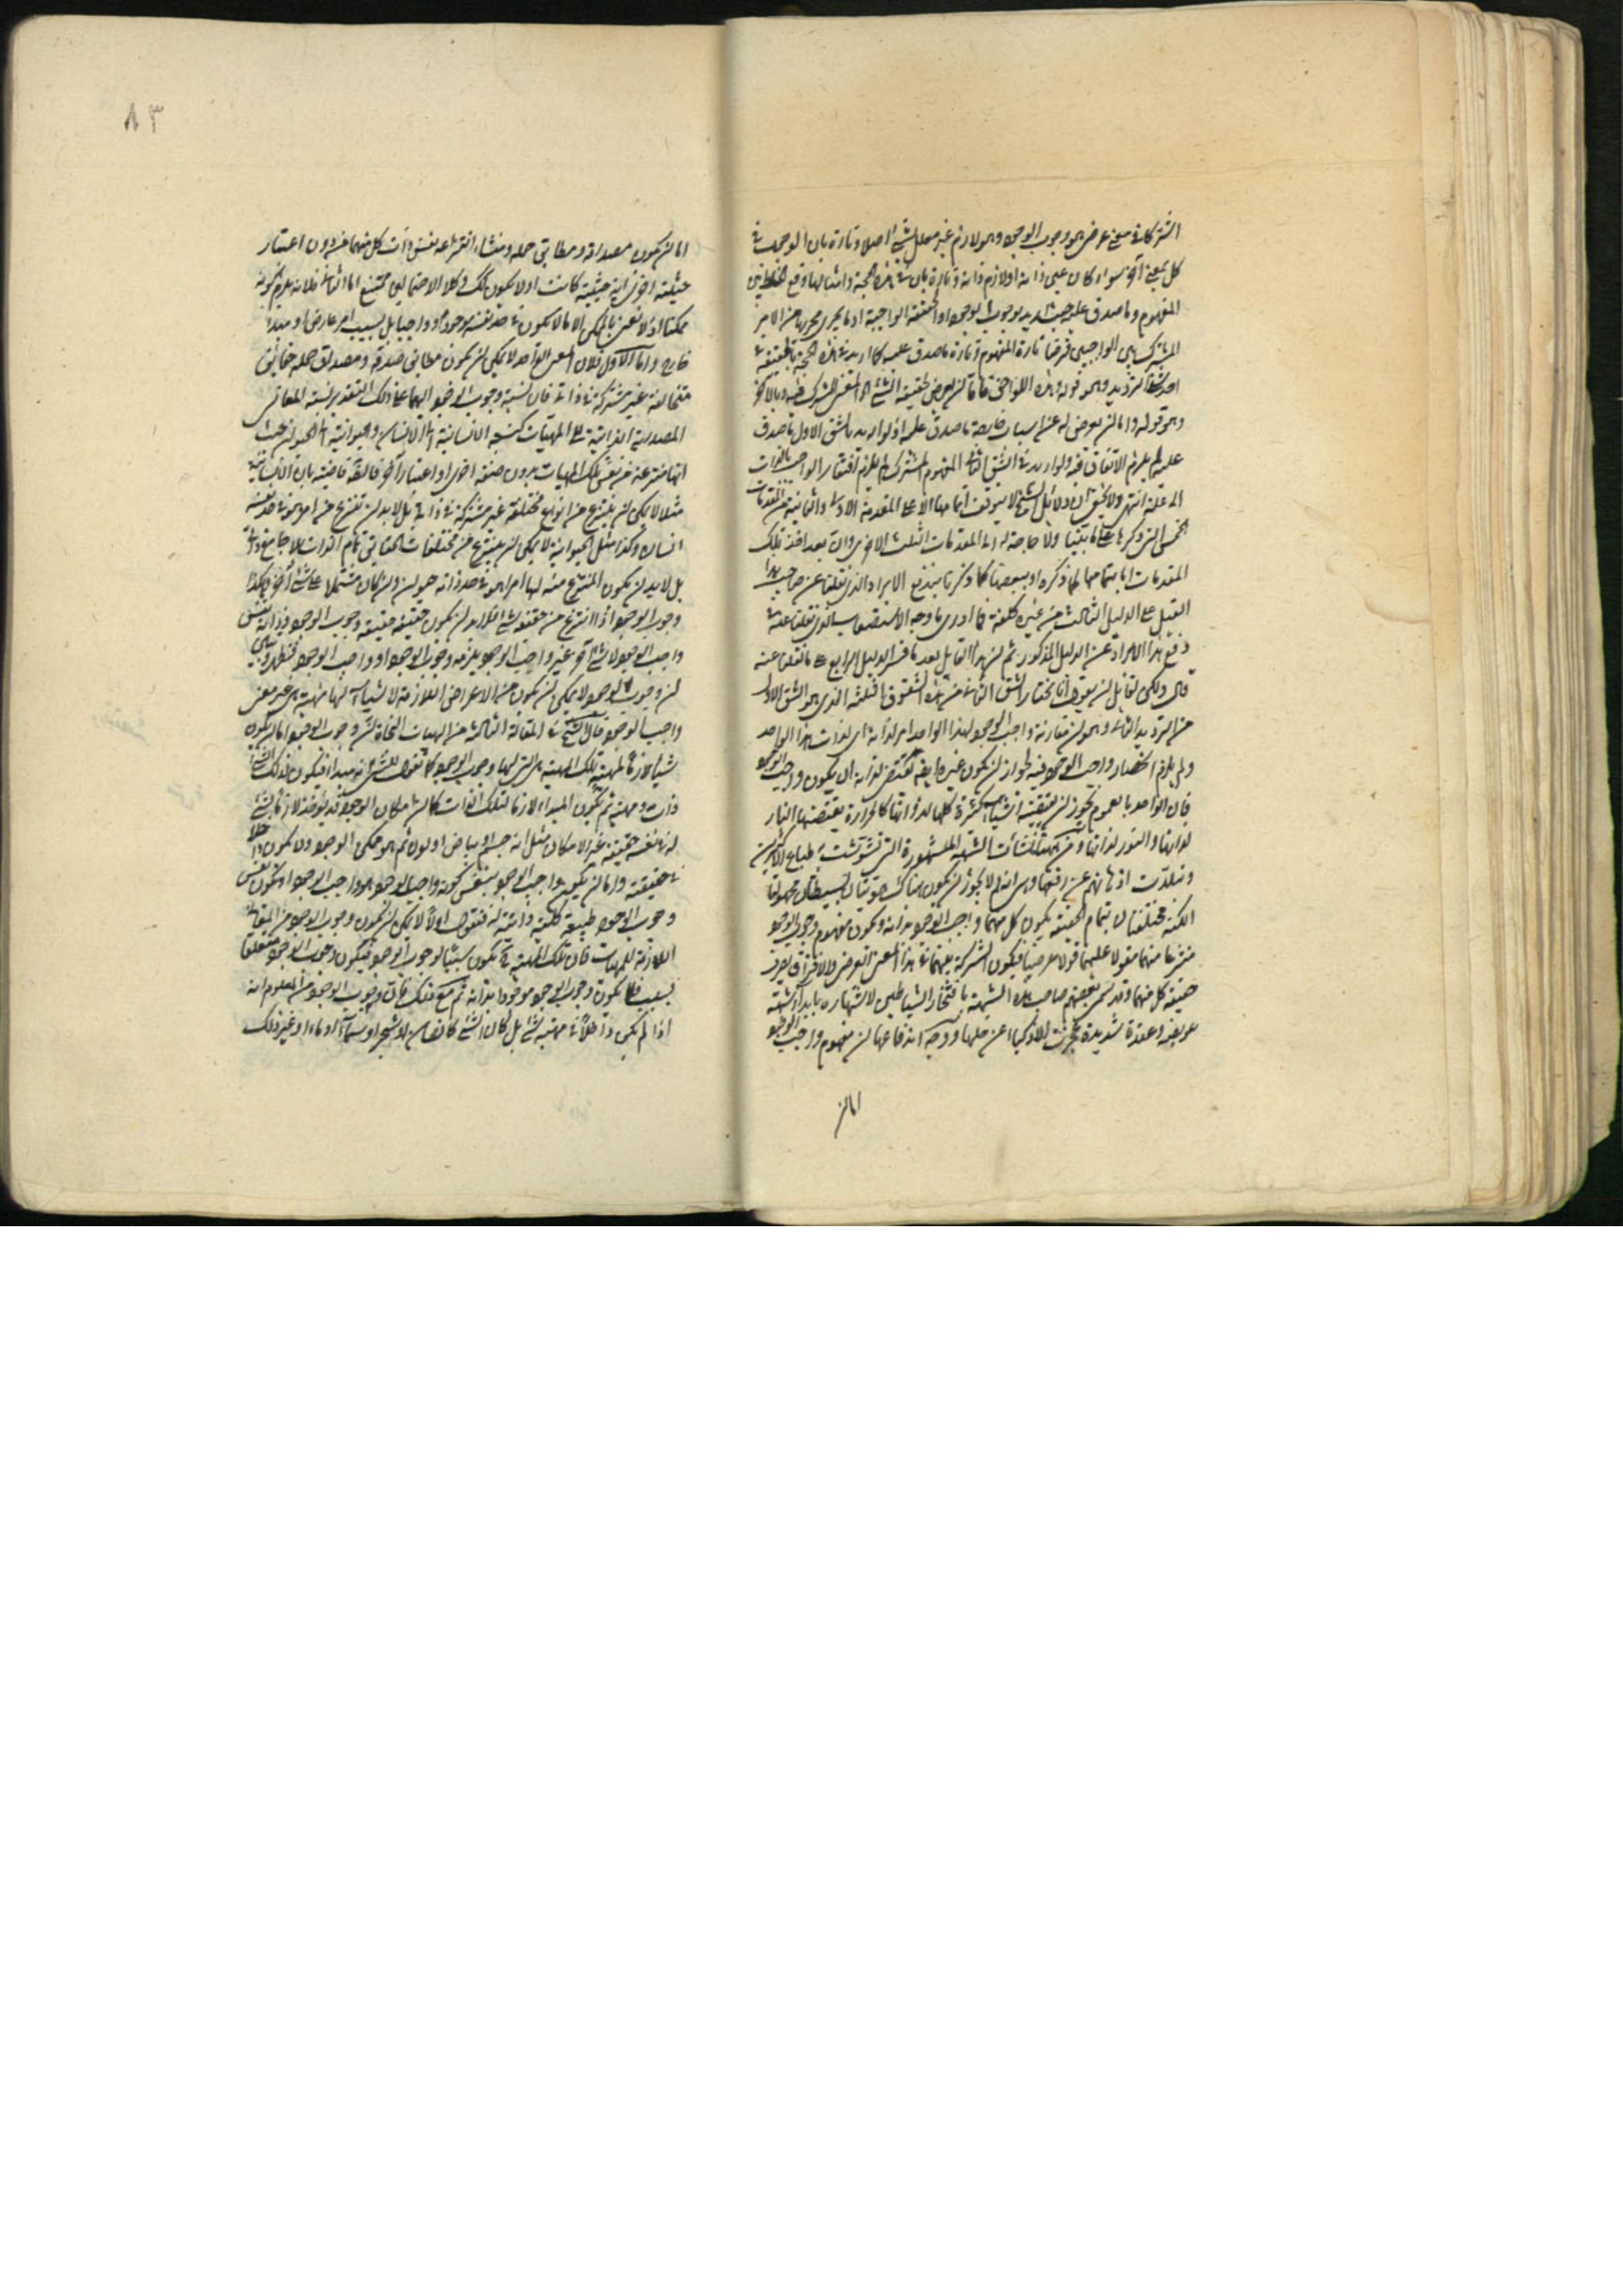 اشتركا في معنى عرضي هو وجوب الوجود وهو لازم غير معلل بشيء اصلا وتارة بان الوجوب في
كل بمعنى آخر سواء كان عين ذاته او لازم ذاته وتارة بان في هذه الحجة وامثالها وقع الخلط بين
المفهوم وما صدق عليه حيث اريد بوجوب الوجود الحقيقة الواجبة
المشترك بين الواجبين فرضا تارة المفهوم وتارة ما صدق عليه كما اريد في هذه الحجة بالحقيقة في
احد شقي الترديد وهو قوله وهذه اللواحق فاما ان يعرض لحقيقة الشيء المشترك فيه وبالآخر
وهو قوله واما ان يعرض له عن اسباب خارجة ما صدق عليه اذ لو اريد بالشق الاول ما صدق
عليه لم يلزم الاتفاق فيه ولو اريد في الشق الثاني المفهوم المشترك لم يلزم افتقار الواجب بالذات
الى علة انتهى ولا يخفى ان دلائل الشيخ لا يتوقف اتمامها الا على المقدمة الاولى والثانية من المقدمات
الخمس التي ذكرها ولا حاجة له الى المقدمات الثلث الاخرى وان بعد اخذ تلك
المقدمات اما بتمامها كما ذكره او ببعضها كما ذكرنا يندفع الايراد الذي نقلنا عن صاحب هذا
القيل على الدليل الثالث من غير كلفة فما ادري ما وجه الاستصعاب الذي نقلنا عنه في
دفع هذا الايراد عن الدليل المذكور ثم ان هذا القايل بعد ما قرر الدليل الرابع على ما نقلنا عنه
قال ولكن لقايل ان يقول انا نختار الشق الثاني من هذه الشقوق الثلثة الذي هو الشق الاول
من الترديد الثاني وهو ان مقارنة واجب الوجود لهذا الواحد امر لذاته اي لذات هذا الواحد
ولم يلزم انحصار واجب الوجود فيه لجواز ان يكون غيره ايضا يقتضي لذاته ان يكون واجب الوجود
فان الواحد بالعموم يجوز ان يقتضيه اشياء كثيرة كلها لذواتها كالحرارة يقتضيها النار
لذاتها والنور لذاتها ومن هيهنا نشأت الشبهة المشهورة التي تشوشت طبايع الاكثرين
وتبلدت اذهانهم عن دفعها وهي انه لم لا يجوز ان يكون هناك هويتان بسيطتان مجهولتا
الكنه مختلفتان بتمام الحقيقة يكون كل منهما واجب الوجود بذاته ويكون مفهوم وجوب الوجود
منتزعا منهما مقولا عليهما قولا عرضيا فيكون الشركة بينهما في هذا المعنى العرضي والافتراق بصرف
حقيقة كل منهما وقد سمى بعضهم صاحب هذه الشبهة بافتخار الشياطين لاشتهاره بابداء شبهة
عويصة وعقدة شديدة عجزت الاذكياء عن حلها ووجه اندفاعها ان مفهوم واجب الوجود
اما ان
٨٣
اما ان يكون مصداقه ومطابق حمله ومنشاء انتزاعه نفس ذات كل منهما من دون اعتبار
حيثية اخرى اية حيثية كانت اولا يكون كذلك وكلا الاحتمالين ممتنع اما الثاني فلانه يلزم كونه
ممكنا اذ لا نعني بالممكن الا ما لا يكون في حد نفسه موجودا وواجبا بل بسبب امر عارض او مبدا
خارج واما الاول فلان المعنى الواحد لا يمكن ان يكون مطابق صدقه ومصداق حمله حقايق
متخالفة غير مشتركة في ذاتي فان نسبة وجوب الوجود اليهما على ذلك التقدير نسبة المعاني
المصدرية الذاتية الى المهيات كنسبة الانسانية الى الانسان والحيوانية الى الحيوان حيث
انها منتزعة من نفس تلك المهيات بدون صفة اخرى او اعتبار آخر فالبداهة قاضية بان الانسانية
مثلا لا يمكن ان ينتزع من انواع مختلفة غير مشتركة في ذاتي بل لا بد ان تنتزع من امر هو في حد نفسه
انسان وكذا مثل الحيوانية لا يمكن ان ينتزع من مختلفات الحقايق تمام الذات بلا جامع ذاتي
بل لا بد ان يكون المنتزع منه لها امرا هو في حد ذاته حيوان وان كان مشتملا على شيء آخر وهكذا
وجوب الوجود اذا انتزع من حقيقة شيء فلا بد ان يكون حقيقته حقيقة وجوب الوجود وذاته نفس
واجب الوجود لا شيء آخر غير واجب الوجود يلزمه وجوب الوجود او واجب الوجود فتظهر وتبين
ان وجوب الوجود لا يمكن ان يكون من الاعراض اللازمة لاشياء لها مهية هي غير معنى
واجب الوجود قال الشيخ في المقالة الثالثة من الهيات النجاة ان وجوب الوجود اما ان يكون
شيئا لازما لمهية تلك المهية هي التي لها وجوب الوجود كما نقول للشيء انه مبدأ فيكون لذلك الشيء
ذات ومهية ثم يكون المبداء لازما لتلك الذات كما ان امكان الوجود قد يوجد لازما لشيء
له في نفسه حقيقة غير الامكان مثل انه جسم او بياض او لون ثم هو ممكن الوجود ولا يكون داخلا
في حقيقته واما ان يكون واجب الوجود بنفس كونه واجب الوجود هو واجب الوجود ويكون نفس
وجوب الوجود طبيعة كلية ذاتية له فنقول اولا لا يمكن ان يكون وجوب الوجود من المعاني
اللازمة للمهيات فان تلك المهية ح تكون سببا لوجوب الوجود فيكون وجوب الوجود متعلقا
بسبب فلا يكون وجوب الوجود موجودا بذاته ثم مع ذلك فان وجوب الوجود من المعلوم انه
اذا لم يكن داخلا في مهية شيء بل كان الشيء كانسان او شجر او سماء او ماء او غير ذلك